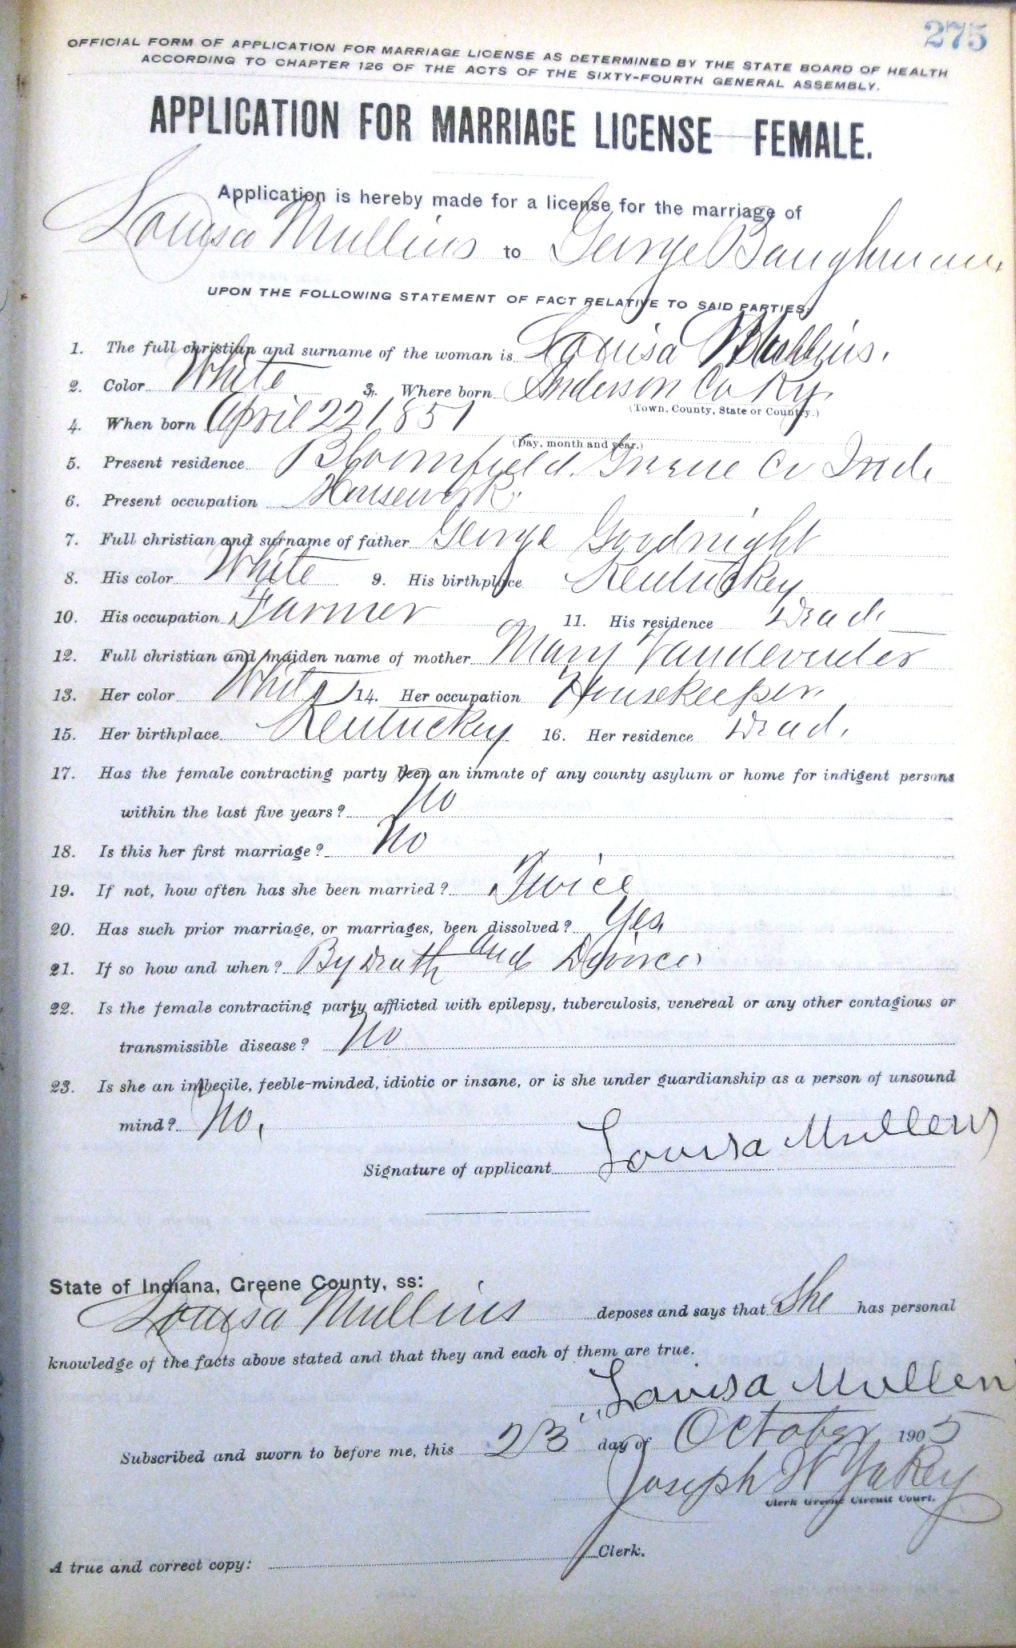 275
OFFICIAL FORM OF APPLICATION FOR MARRIAGE LICENSE AS DETERMINED BY THE STATE BOARD OF HEALTH
ACCORDING TO CHAPTER 126 OF THE ACTS OF THE SIXTY-FOURTH GENERAL ASSEMBLY.
APPLICATION FOR MARRIAGE LICENSE—FEMALE.
Application is hereby made for a license for the marriage of
Louisa Mullins to George Baughman
UPON THE FOLLOWING STATEMENT OF FACT RELATIVE TO SAID PARTIES:
1. The full christian and surname of the woman is Louisa Mullins.
2. Color White 3. Where born Anderson Co Ky.
(Town, County, State or Country.)
4. When born April 22 1851
(Day, month and year.)
5. Present residence Bloomfield. Greene Co Ind.
6. Present occupation Housework.
7. Full christian and surname of father George Goodnight
8. His color White 9. His birthplace Kentuckey
10. His occupation Farmer 11. His residence Dead
12. Full christian and maiden name of mother Mary Vandeventer
13. Her color White 14. Her occupation Housekeeper.
15. Her birthplace Kentuckey 16. Her residence Dead.
17. Has the female contracting party been an inmate of any county asylum or home for indigent persons
within the last five years? No
18. Is this her first marriage? No
19. If not, how often has she been married? Twice
20. Has such prior marriage, or marriages, been dissolved? Yes
21. If so how and when? By Death and Divorce
22. Is the female contracting party afflicted with epilepsy, tuberculosis, venereal or any other contagious or
transmissible disease? No
23. Is she an imbecile, feeble-minded, idiotic or insane, or is she under guardianship as a person of unsound
mind? No.
Signature of applicant Louisa Mullens
State of Indiana, Greene County, ss:
Louisa Mullins deposes and says that She has personal
knowledge of the facts above stated and that they and each of them are true.
Louisa Mullen
Subscribed and sworn to before me, this 23" day of October 1905
Joseph W Yakey
Clerk Greene Circuit Court.
A true and correct copy: Clerk.